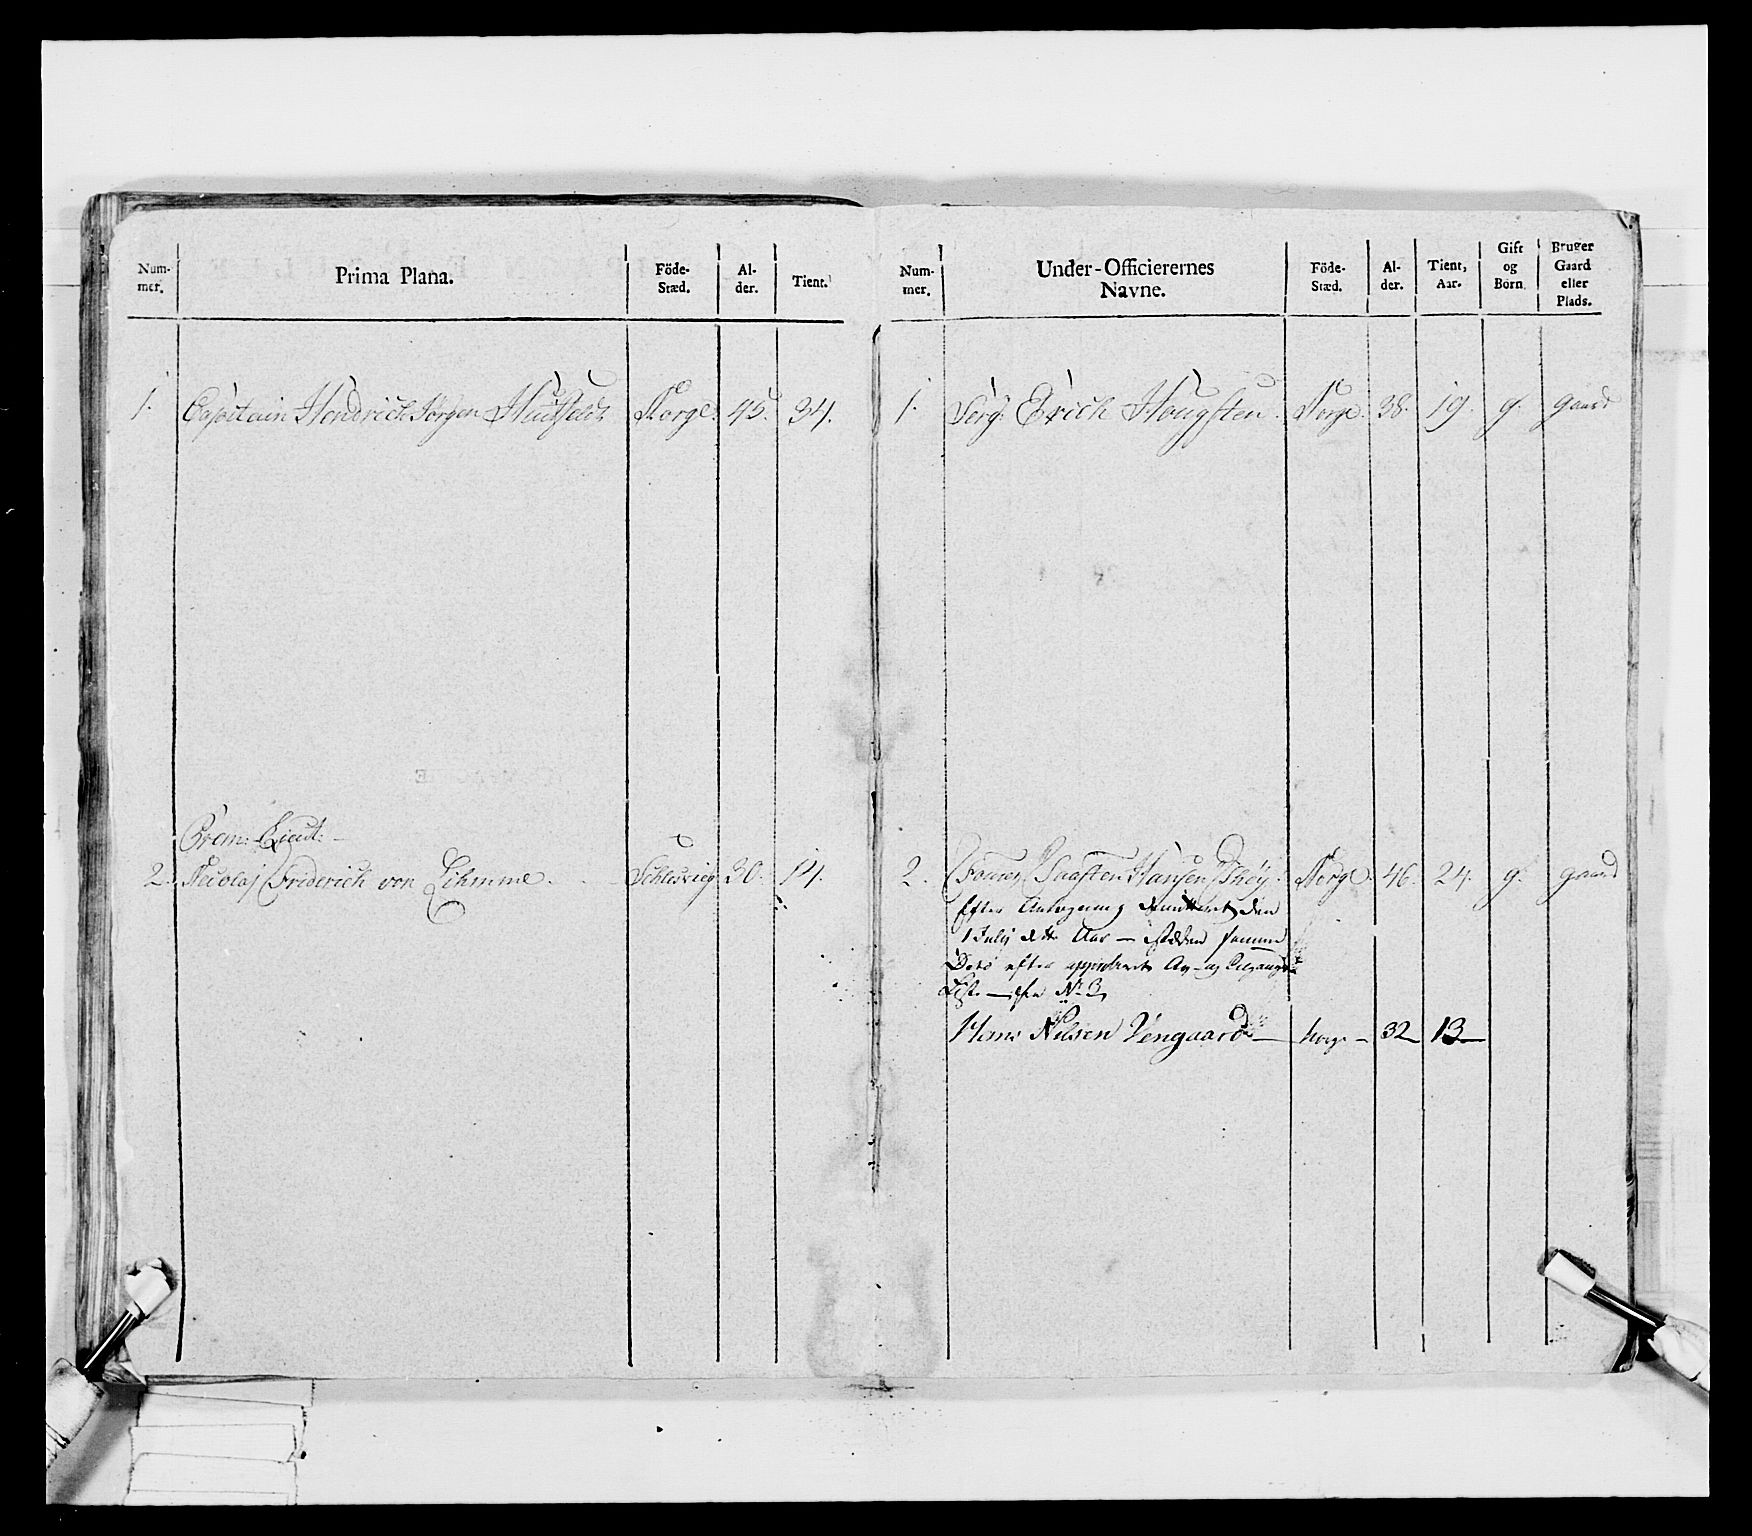 Num-
mer.
Prima Plana.
Föde-
Stæd.
Al-
der.
Tient.
1. Capitain Hendrich Jörgen Huitfeldt Norge. 45. 34.
Prem: Lieut:
2. Nicolaj Friderich von Lihmme. Schlesvig 30. 14.
Num-
mer.
Under-Officierernes
Navne.
Föde-
Stæd.
Al-
der.
Tient,
Aar.
Gift
og
Börn.
Bruger
Gaard
eller
Plads.
1. Serg: Erich Hougsten. Norge. 38. 19. g. gaard
2. Fourer Hansen Norge. 46. 24. g. gaard
Efter Ansögning dimitteret den
1 July dette Aar — samme
Dato efter approberet Af- og Tilgangs
Liste — fra No 3
Hans Nilsen Vengaard — Norge — 32 — 13 —